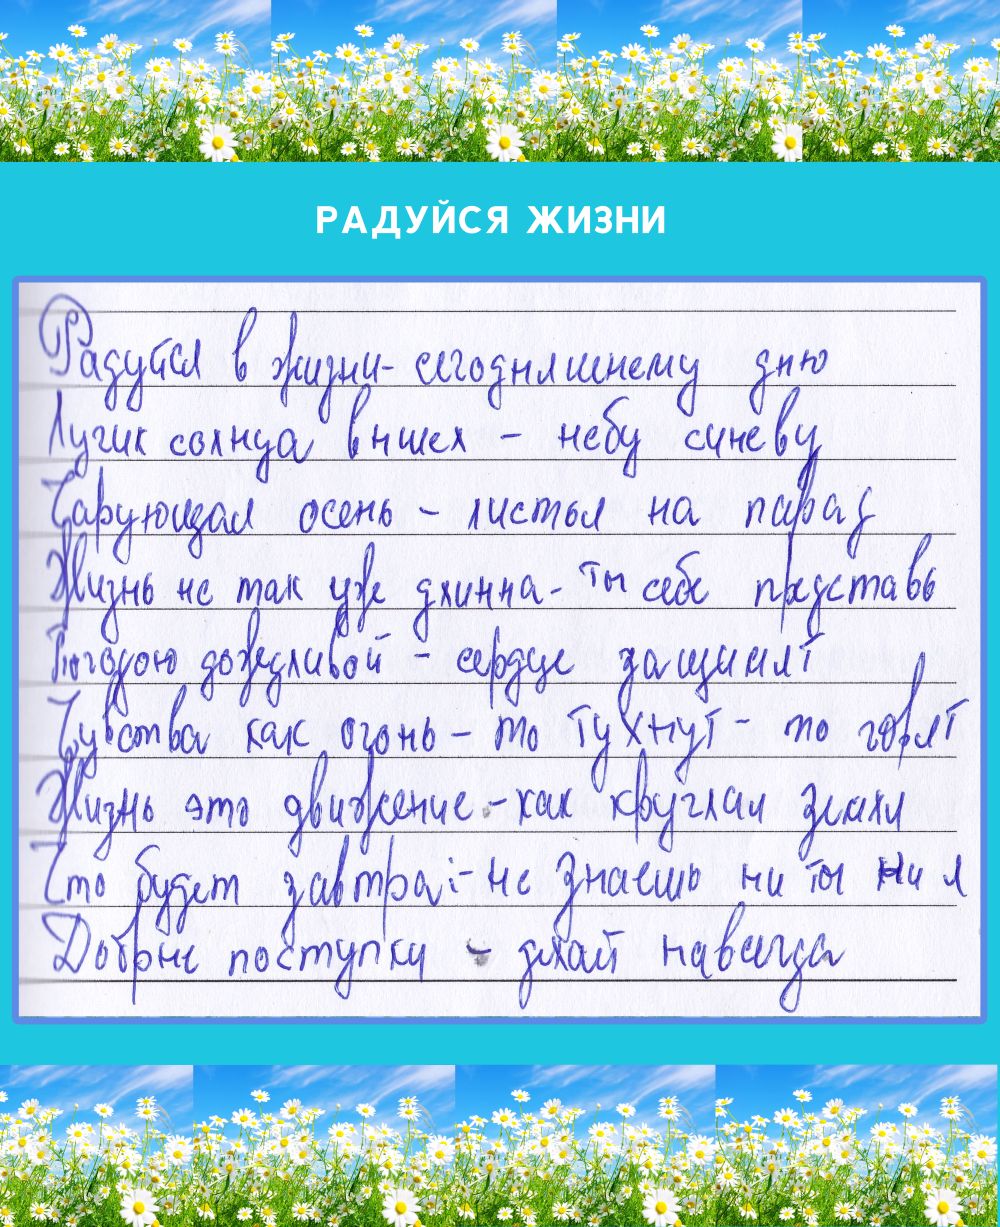 РАДУЙСЯ ЖИЗНИ
Радуйся в жизни - сегодняшнему дню
Лучик солнца вншел - небу синеву
Чарующая осень - листья на парад
Жизнь не так уже длинна - ты себе представь
Погодою дождливой - сердце защимят
Чувства как огонь - то тухнут - то горят
Жизнь это движение - как круглая земля
Что будет завтра - не знаешь ни ты ни я
Добрне поступки - делай навсегда